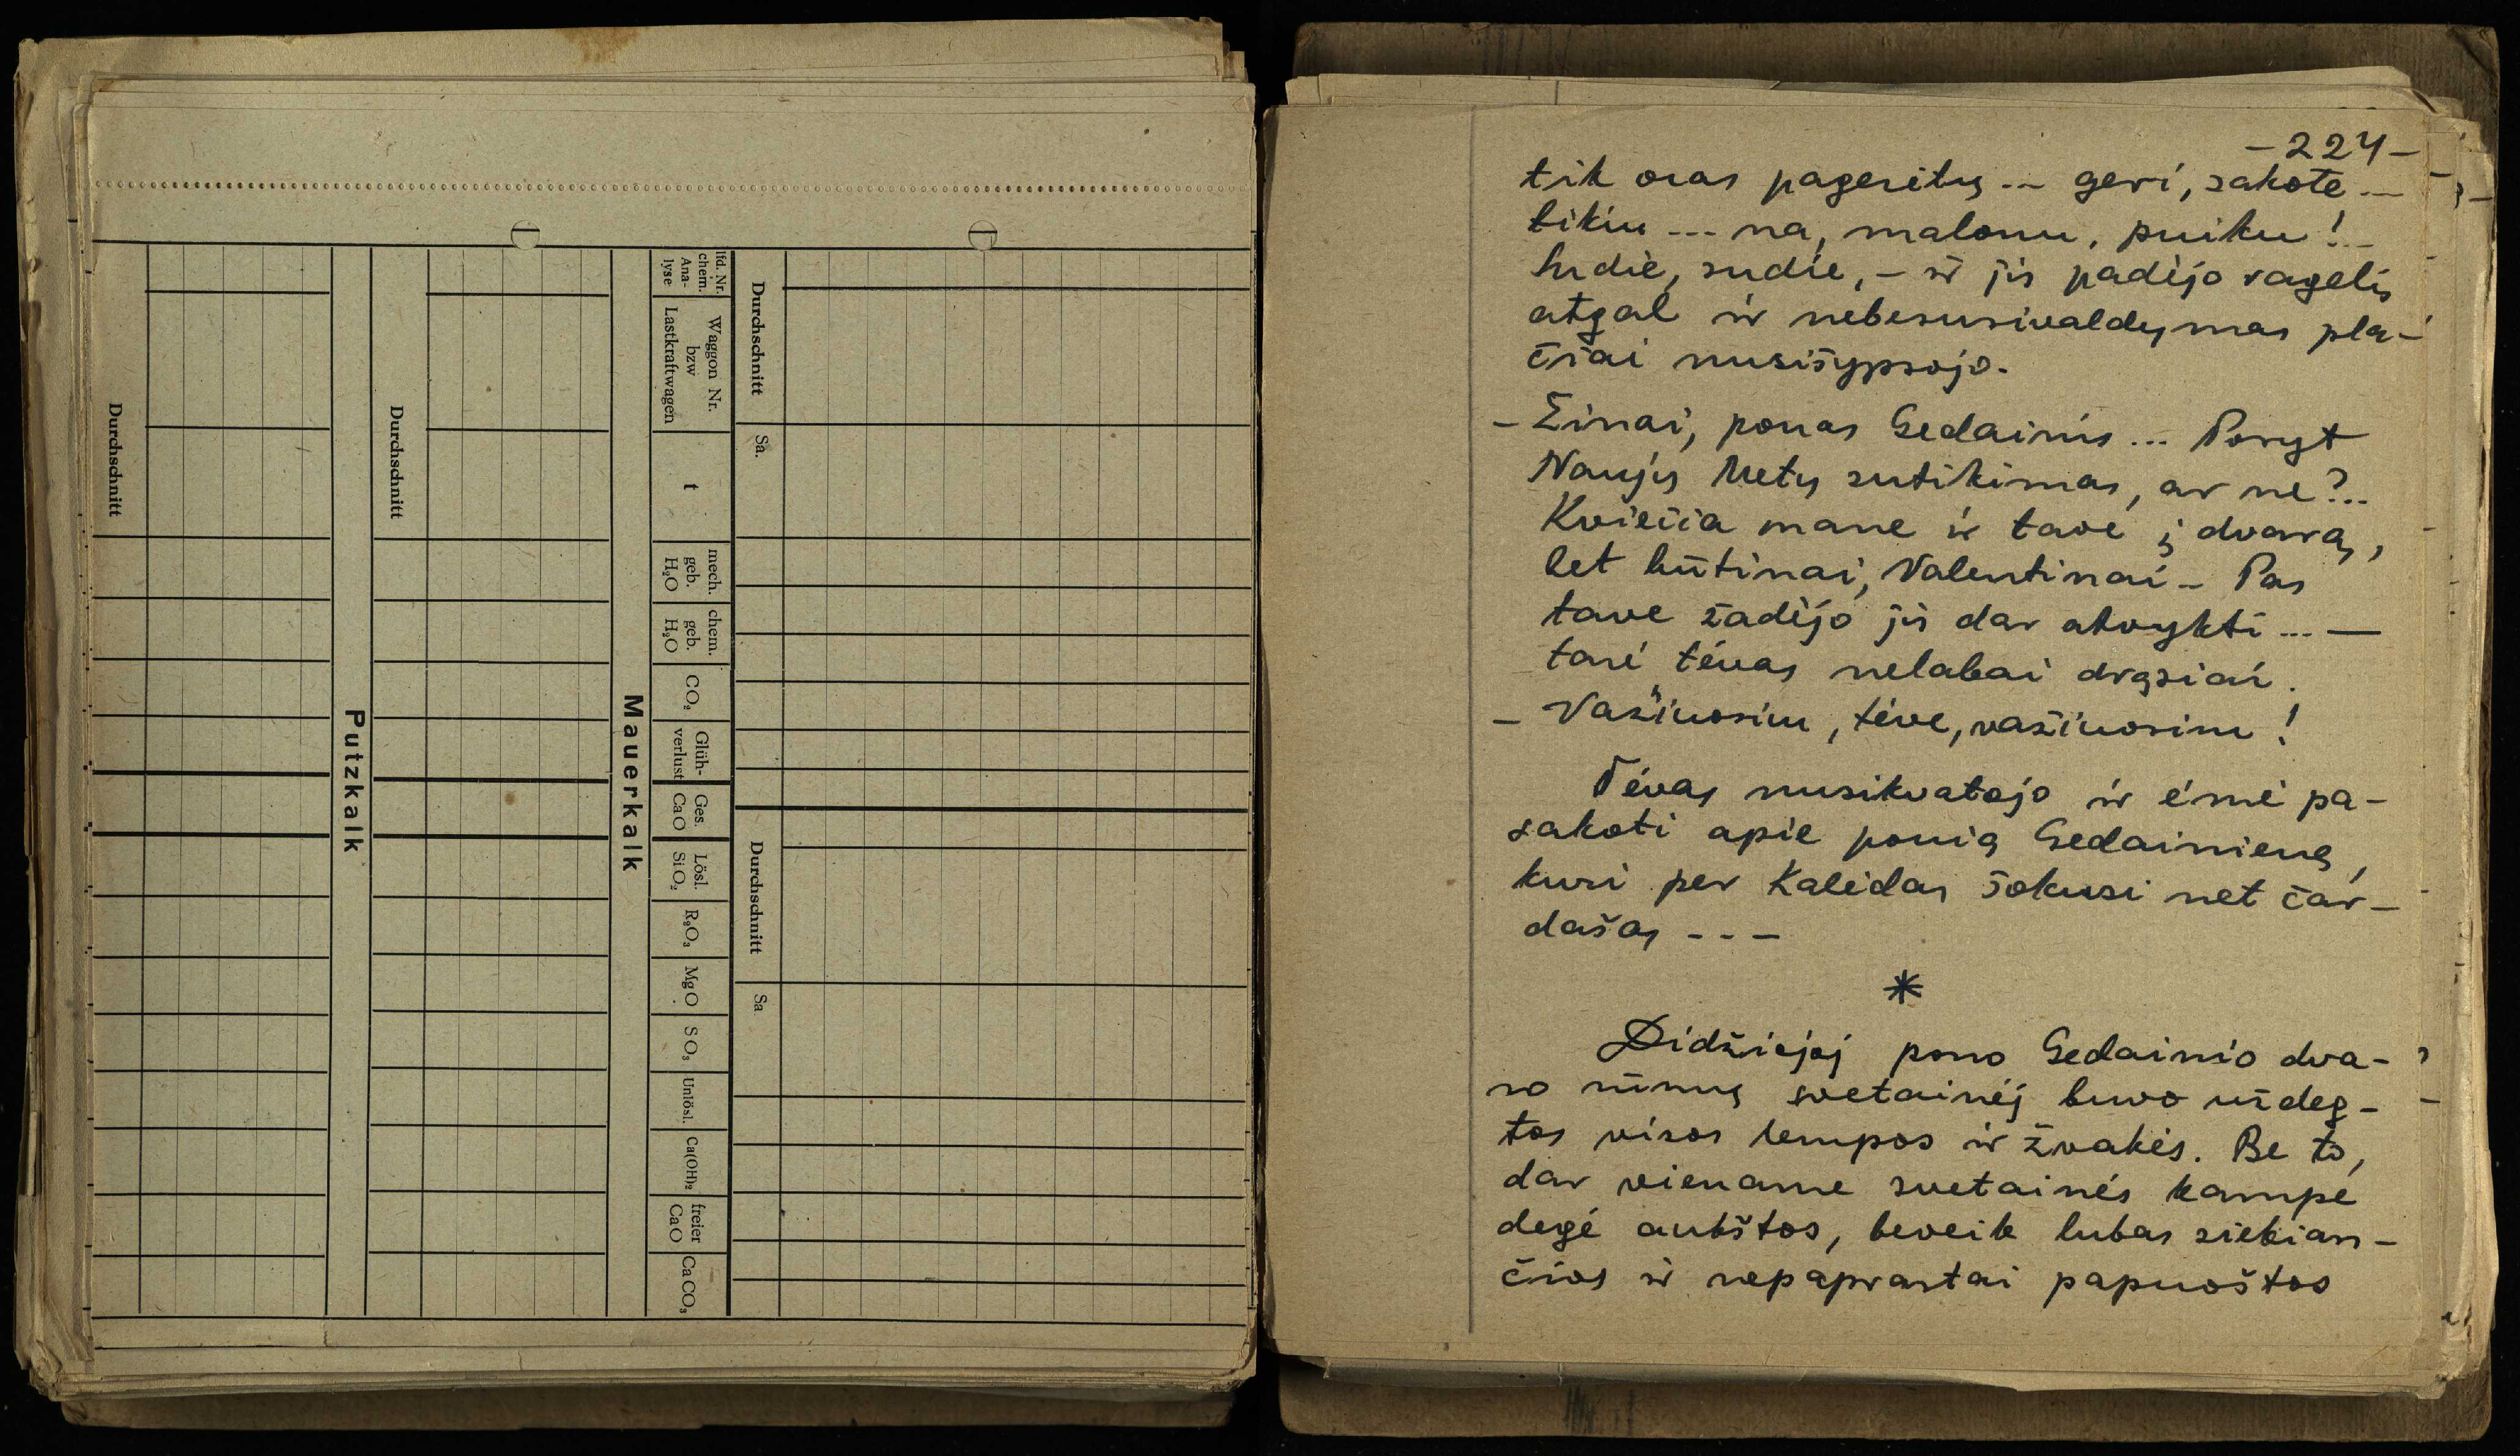 Durchschnitt
Sa.
Durchschnitt
Sa
lfd. Nr.
chem.
Ana-
lyse
Waggon Nr.
bzw
Lastkraftwagen
t
mech.
geb.
H₂O
chem.
geb.
H₂O
CO₂
Glüh-
verlust
Ges.
CaO
Lösl.
SiO₂
R₂O₃
MgO
SO₃
Unlösl.
Ca(OH)₂
freier
CaO
CaCO₃
Mauerkalk
Durchschnitt
Putzkalk
Durchschnitt
-224-
tik oras pagerėtų ... geri, sakote ...
tikiu ... na, malonu, puiku!..
Sudie, sudie, - ir jis padėjo ragelį
atgal ir nebesusivaldymas pla-
čiai nusišypsojo.
- Žinai, ponas Gedainis ... Poryt
Naujų Metų sutikimas, ar ne?..
Kviečia mane ir tave į dvarą,
bet būtinai, Valentinai - Pas
tave žadėjo jis dar atvykti ... —
tarė tėvas nelabai drąsiai.
- Važiuosim, tėve, važiuosim!
Tėvas nusikvatojo ir ėmė pa-
sakoti apie ponią Gedainienę,
kuri per Kalėdas šokusi net čar-
dašą - - -
*
Didžiojoj pono Gedainio dva-
ro rūmų svetainėj buvo uždeg-
tos visos lempos ir žvakės. Be to,
dar viename svetainės kampe
degė aukštos, beveik lubas siekian-
čios ir nepaprastai papuoštos